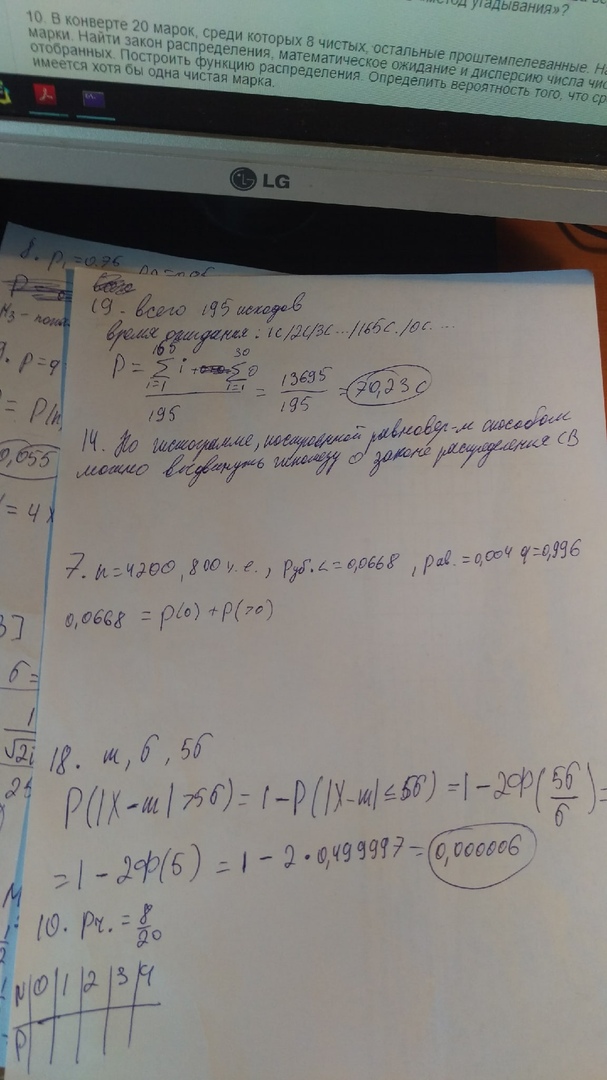 метод угадывания»?
10. В конверте 20 марок, среди которых 8 чистых, остальные проштемпелеванные.
марки. Найти закон распределения, математическое ожидание и дисперсию числа
отобранных. Построить функцию распределения. Определить вероятность того, что
имеется хотя бы одна чистая марка.
LG
8. P₁=0,96
19. всего 195 исходов
время ожидания: 1с/2с/3с.../165с./0с. ...
P = (165 Σ i=1 i + 30 Σ i=1 0) / 195 = 13695/195 = 70,23 с
14. По гистограмме, построенной равновер-м способом
можно выдвинуть гипотезу о законе распределения СВ
0,055
= 4x
7. n=4200, 800 у.е., Pуб.<=0,0668, Pав.=0,004 q=0,996
0,0668 = P(0) + P(>0)
18. m, б, 5б
P(|X-m|>5б) = 1-P(|X-m|≤5б) = 1-2Ф(5б/б) =
= 1-2Ф(5) = 1-2•0,499997 = 0,000006
10. Pч. = 8/20
N|0|1|2|3|4
P